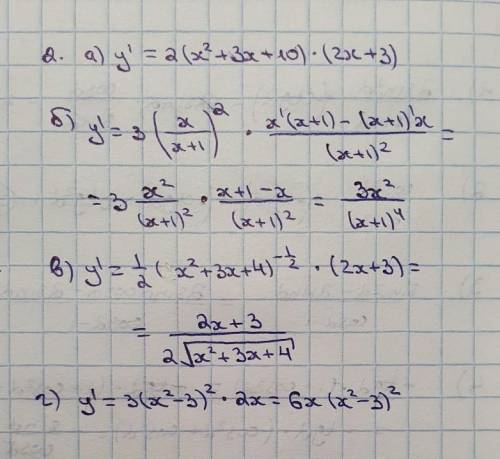 2. а) y' = 2(x² + 3x + 10) · (2x + 3)
б) y' = 3 (x/(x+1))² · (x'(x+1) − (x+1)'x)/(x+1)² =
= 3 x²/(x+1)² · (x+1−x)/(x+1)² = 3x²/(x+1)⁴
в) y' = 1/2 (x² + 3x + 4)^(−1/2) · (2x + 3) =
= (2x + 3)/(2√(x² + 3x + 4))
г) y' = 3(x² − 3)² · 2x = 6x (x² − 3)²